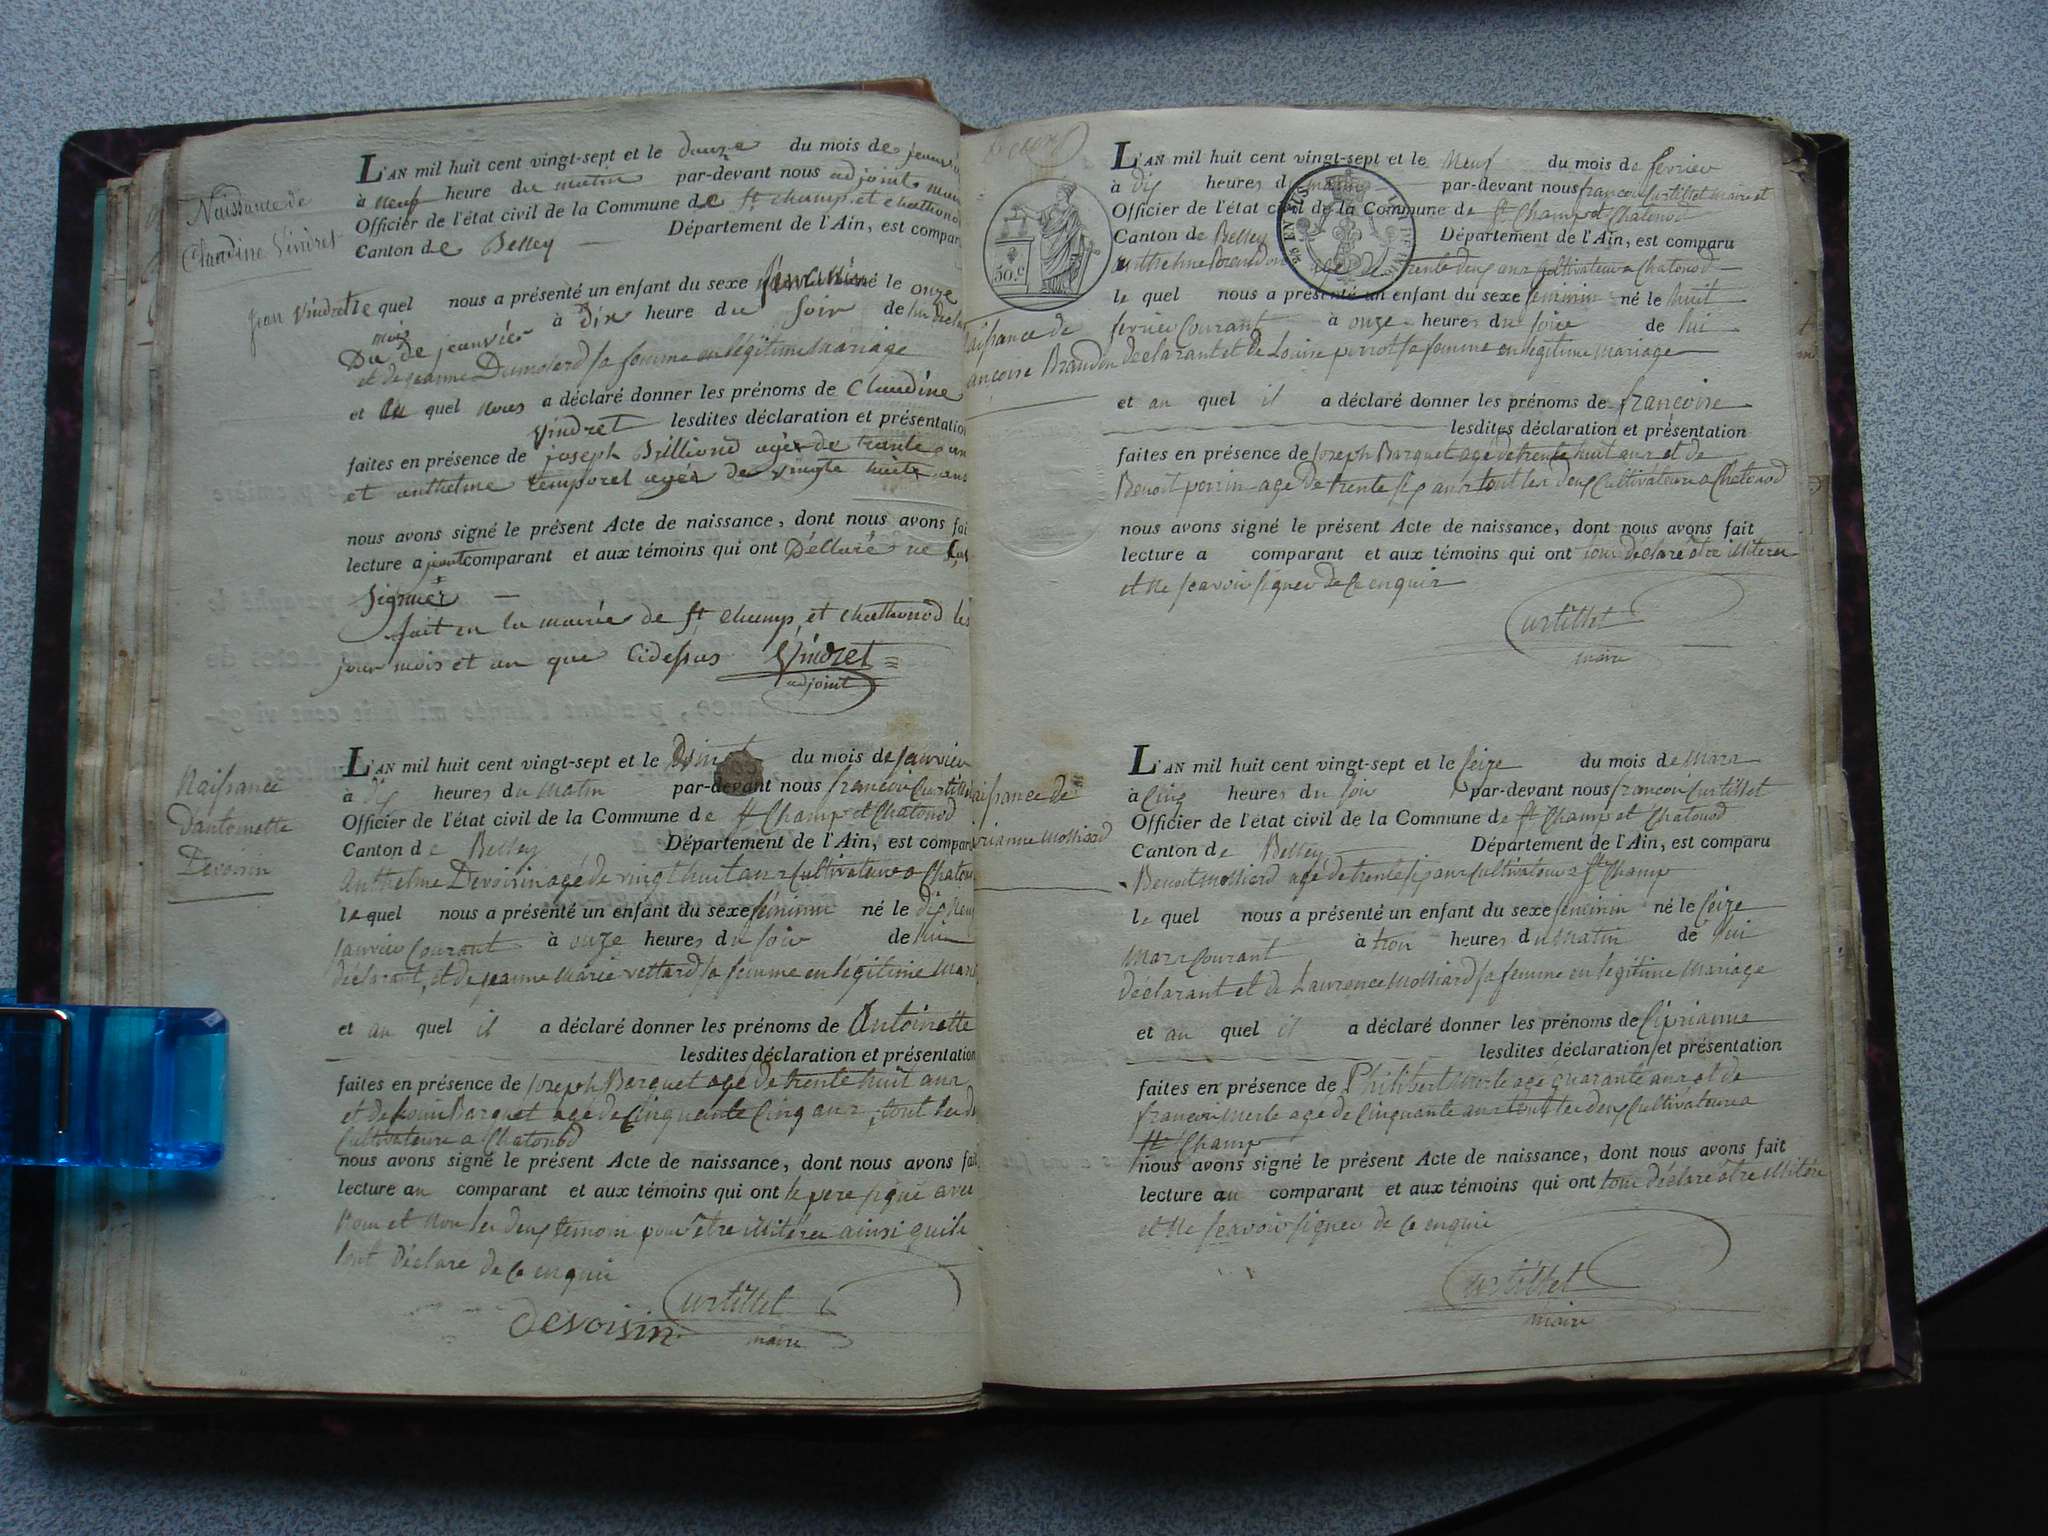 Naissance de
Claudine Vindret
L'AN mil huit cent vingt-sept et le douze du mois de jeanvié
à neuf heure du matin par-devant nous adjoint maire
Officier de l'état civil de la Commune de St champ et chathonod
Canton de Belley Département de l'Ain, est comparu
jean vindret le quel nous a présenté un enfant du sexe né le onze
Du mois de jeanvier à dix heure du soir de lui
et de jeanne Dumolard sa femme en légitime mariage
et au quel nous a déclaré donner les prénoms de Claudine
vindret lesdites déclaration et présentation
faites en présence de joseph Billiond agér de trante ans
et anthelme temporel agér de vingte huite ans
nous avons signé le présent Acte de naissance, dont nous avons fait
lecture a comparant et aux témoins qui ont Déllaré ne
signier
fait en la mairie de st champ, et chathonod les
jour mois et an que Cidessus Vindret
adjoint
Naissance
d'antoinette
Devoisin
L'AN mil huit cent vingt-sept et le du mois de janvier
à dix heures du matin par-devant nous francois Curtillet
Officier de l'état civil de la Commune de St Champ et Chatonod
Canton de Belley Département de l'Ain, est comparu
Anthelme Devoisin agé de vingt huit ans Cultivateur a Chatonod
le quel nous a présenté un enfant du sexe féminin né le dix neuf
janvier Courant à onze heures du soir de lui
déclarant, et de jeanne Marie vettard sa femme en légitime Mariage
et au quel il a déclaré donner les prénoms de Antoinette
lesdites déclaration et présentation
faites en présence de joseph Barquet agé de trente huit ans
et de Louis Barquet agé de Cinquante Cinq ans, tout les deux
Cultivateurs a Chatonod
nous avons signé le présent Acte de naissance, dont nous avons fait
lecture au comparant et aux témoins qui ont le pere signé avec
Nous et Non les deux temoins pour être illitérés ainsi quils
l'ont Déclaré de Ce enquis
Devoisin Curtillet
maire
L'AN mil huit cent vingt-sept et le Neuf du mois de fevrier
à dix heures du matin par-devant nous francois Curtillet maire et
Officier de l'état civil de la Commune de St Champ et Chatonod
Canton de Belley Département de l'Ain, est comparu
anthelme Braudon agé de trente deux ans Cultivateur a Chatonod
le quel nous a présenté un enfant du sexe feminin né le huit
fevrier Courant à onze heures du soir de lui
declarant et de Louise perrot sa femme en légitime Mariage
Naissance de
françoise Braudon
30.c
et au quel il a déclaré donner les prénoms de françoise
lesdites déclaration et présentation
faites en présence de joseph Barquet agé de trente huit ans et de
Benoit perrin agé de trente six ans tout les deux Cultivateurs a Chatonod
nous avons signé le présent Acte de naissance, dont nous avons fait
lecture a comparant et aux témoins qui ont tous déclaré être illiterés
et Ne sçavoir signer de Ce enquis
Curtillet
maire
Naissance de
Ciprianne Molliard
L'AN mil huit cent vingt-sept et le seize du mois de Mars
à Cinq heures du soir par-devant nous francois Curtillet
Officier de l'état civil de la Commune de St Champ et Chatonod
Canton de Belley Département de l'Ain, est comparu
Benoit Molliard agé de trente six ans Cultivateur a St Champ
le quel nous a présenté un enfant du sexe feminin né le seize
Mars Courant à trois heures du Matin de lui
déclarant et de Laurence Molliard sa femme en légitime Mariage
et au quel il a déclaré donner les prénoms de Ciprianne
lesdites déclaration et présentation
faites en présence de Philibert Merle agé quarante ans et de
francois Merle agé de Cinquante ans tout les deux Cultivateurs a
St Champ
nous avons signé le présent Acte de naissance, dont nous avons fait
lecture au comparant et aux témoins qui ont tous déclaré être illitérés
et Ne sçavoir signer de Ce enquis
Curtillet
maire